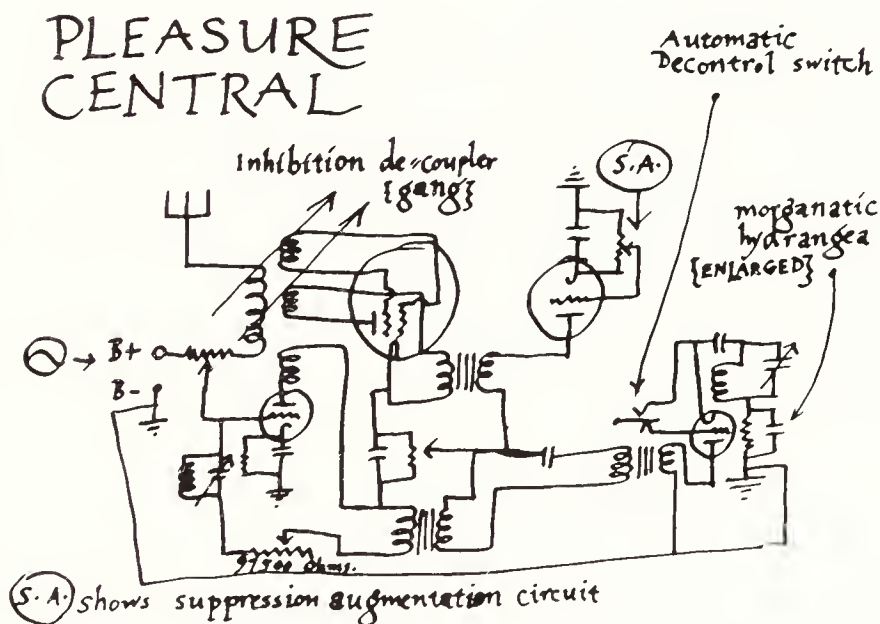 PLEASURE
CENTRAL
Automatic
Decontrol switch
Inhibition de-coupler
{gang}
S.A.
morganatic
hydrangea
{ENLARGED}
B+
B-
97500 ohms.
S.A. shows suppression augmentation circuit